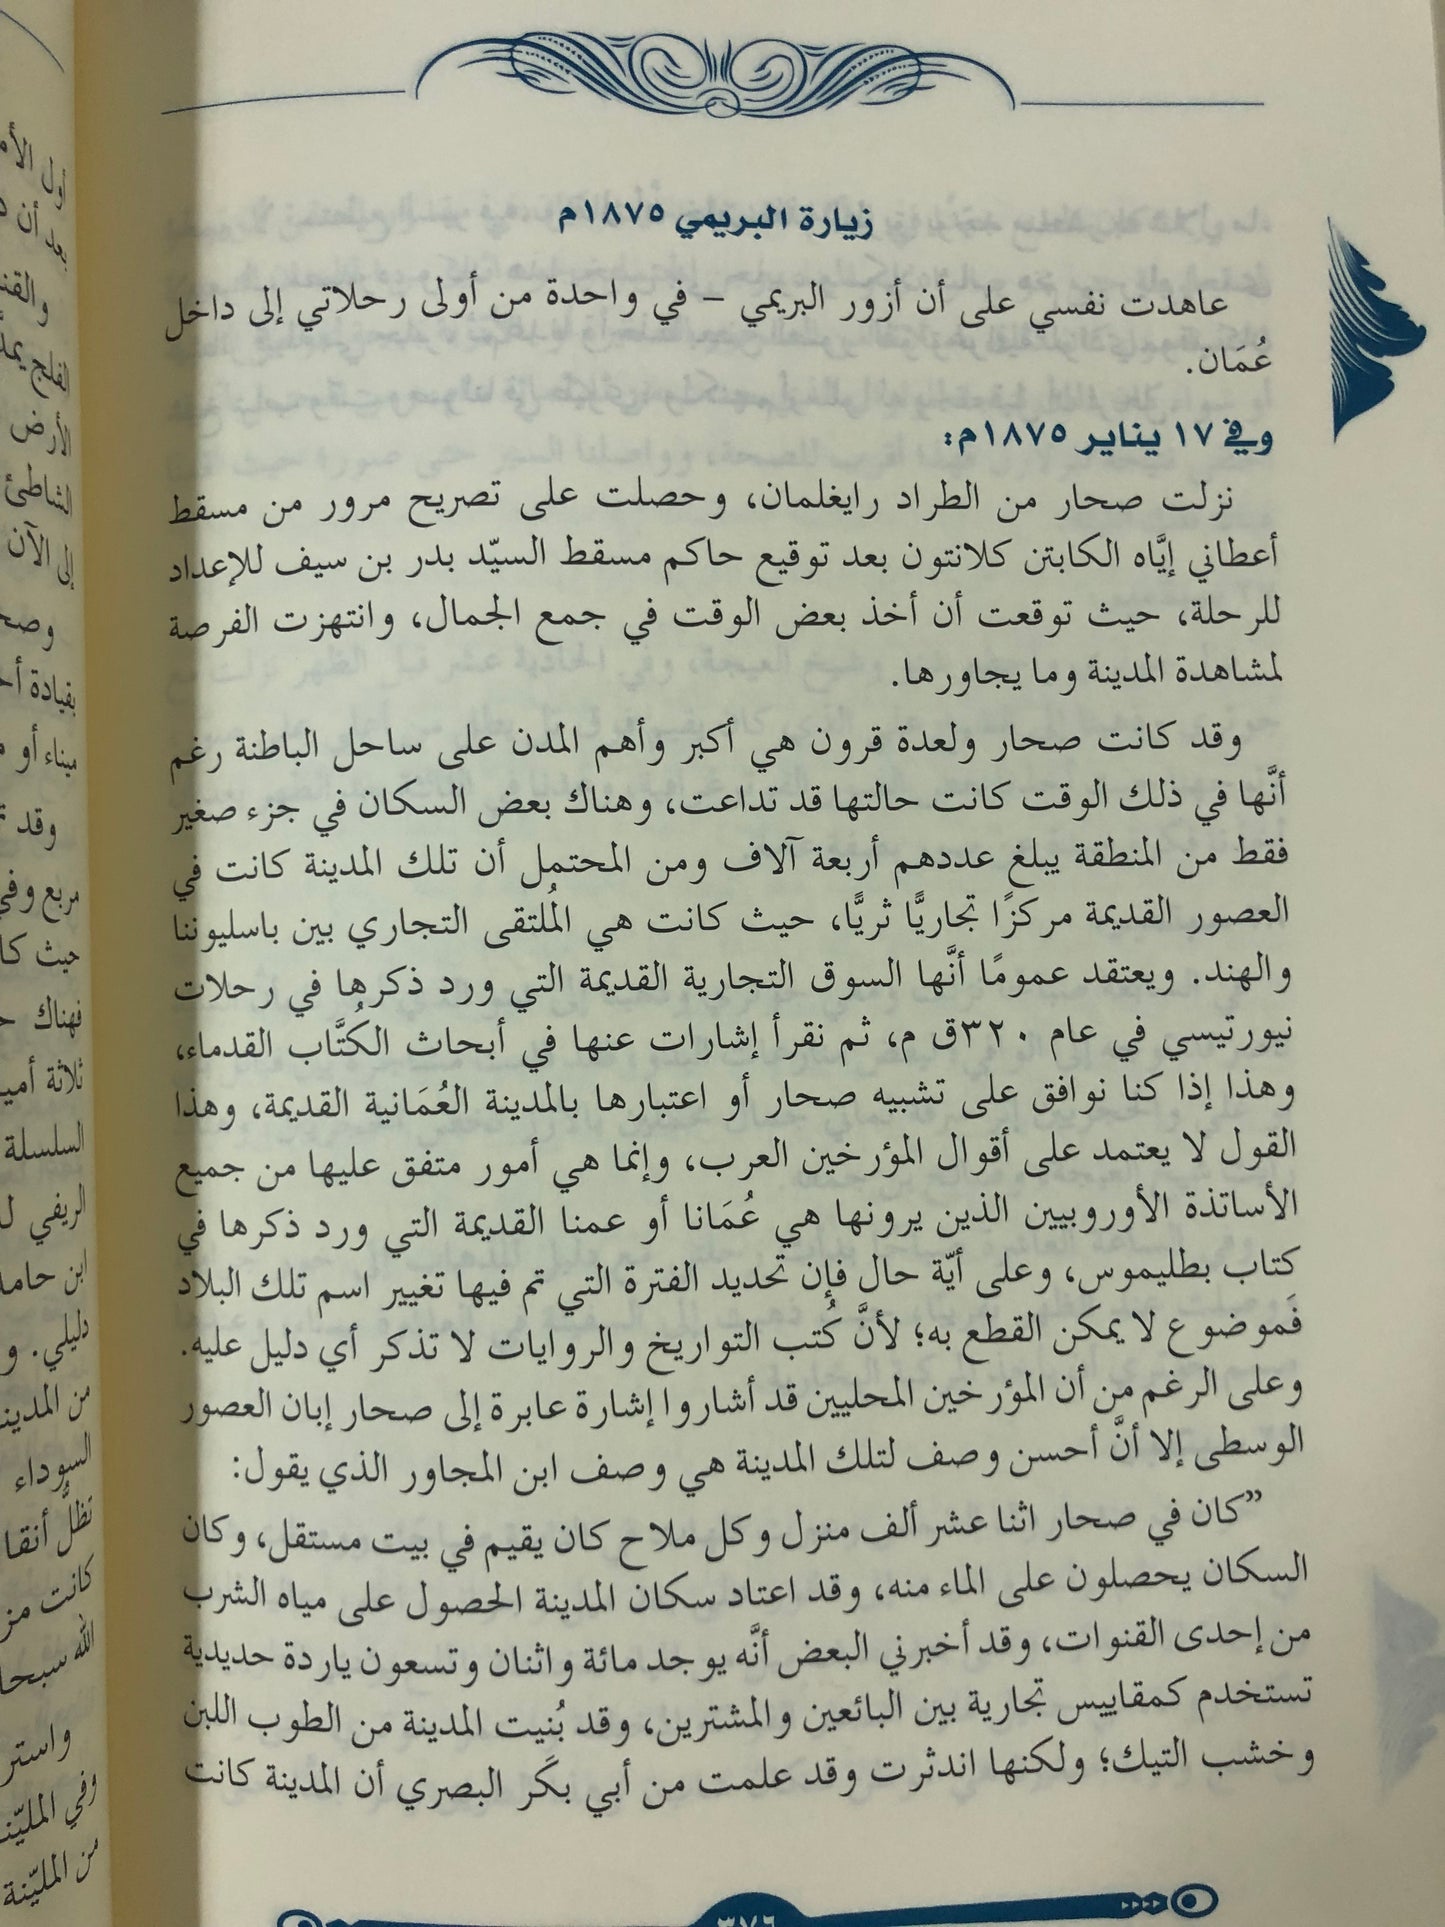 زيارة البريمي ١٨٧٥م
عاهدت نفسي على أن أزور البريمي – في واحدة من أولى رحلاتي إلى داخل
عُمَان.
وفي ١٧ يناير ١٨٧٥م:
نزلت صحار من الطراد رايغلمان، وحصلت على تصريح مرور من مسقط
أعطاني إيَّاه الكابتن كلانتون بعد توقيع حاكم مسقط السيّد بدر بن سيف للإعداد
للرحلة، حيث توقعت أن أخذ بعض الوقت في جمع الجمال، وانتهزت الفرصة
لمشاهدة المدينة وما يجاورها.
وقد كانت صحار ولعدة قرون هي أكبر وأهم المدن على ساحل الباطنة رغم
أنَّها في ذلك الوقت كانت حالتها قد تداعت، وهناك بعض السكان في جزء صغير
فقط من المنطقة يبلغ عددهم أربعة آلاف ومن المحتمل أن تلك المدينة كانت في
العصور القديمة مركزًا تجاريًّا ثريًّا، حيث كانت هي المُلتقى التجاري بين باسليوننا
والهند. ويعتقد عمومًا أنَّها السوق التجارية القديمة التي ورد ذكرها في رحلات
نيورتيسي في عام ٣٢٠ق م، ثم نقرأ إشارات عنها في أبحاث الكُتَّاب القدماء،
وهذا إذا كنا نوافق على تشبيه صحار أو اعتبارها بالمدينة العُمَانية القديمة، وهذا
القول لا يعتمد على أقوال المؤرخين العرب، وإنما هي أمور متفق عليها من جميع
الأساتذة الأوروبيين الذين يرونها هي عُمَانا أو عمنا القديمة التي ورد ذكرها في
كتاب بطليموس، وعلى أيّة حال فإن تحديد الفترة التي تم فيها تغيير اسم تلك البلاد
فَموضوع لا يمكن القطع به؛ لأنَّ كُتب التواريخ والروايات لا تذكر أي دليل عليه.
وعلى الرغم من أن المؤرخين المحليين قد أشاروا إشارة عابرة إلى صحار إبان العصور
الوسطى إلا أنَّ أحسن وصف لتلك المدينة هي وصف ابن المجاور الذي يقول:
”كان في صحار اثنا عشر ألف منزل وكل ملاح كان يقيم في بيت مستقل، وكان
السكان يحصلون على الماء منه، وقد اعتاد سكان المدينة الحصول على مياه الشرب
من إحدى القنوات، وقد أخبرني البعض أنَّه يوجد مائة واثنان وتسعون ياردة حديدية
تستخدم كمقاييس تجارية بين البائعين والمشترين، وقد بُنيت المدينة من الطوب اللبن
وخشب التيك؛ ولكنها اندثرت وقد علمت من أبي بكَر البصري أن المدينة كانت
٣٧٦